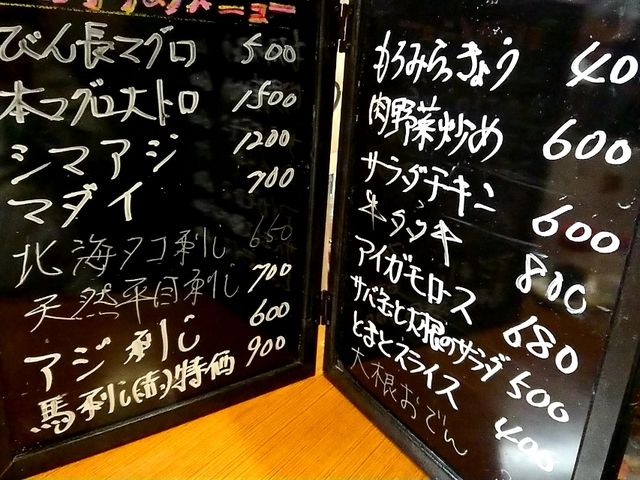 メニュー
びん長マグロ 500
本マグロ大トロ 1500
シマアジ 1200
マダイ 700
北海タコ刺し 650
天然平目刺し 700
アジ刺し 600
馬刺し(赤)特価 900
もろみらっきょう 40
肉野菜炒め 600
サラダチキン 600
牛タタキ 800
アイガモロース 680
サバ缶と大根のサラダ 500
とまとスライス 400
大根おでん